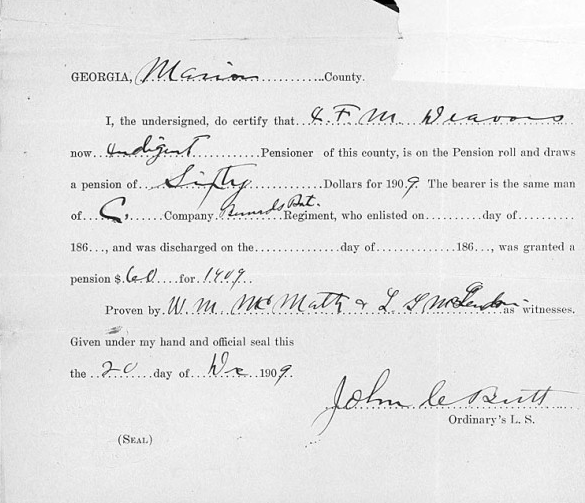 GEORGIA, Marion County.
I, the undersigned, do certify that F. M.
now Indigent Pensioner of this county, is on the Pension roll and draws
a pension of Sixty Dollars for 1909. The bearer is the same man
of C. Company Bat. Regiment, who enlisted on day of
186..., and was discharged on the day of 186..., was granted a
pension $ 60 for 1909
Proven by W. M. McMath & L. G. as witnesses.
Given under my hand and official seal this
the 20 day of Dec 1909.
John C Butt
Ordinary's L. S.
(SEAL)